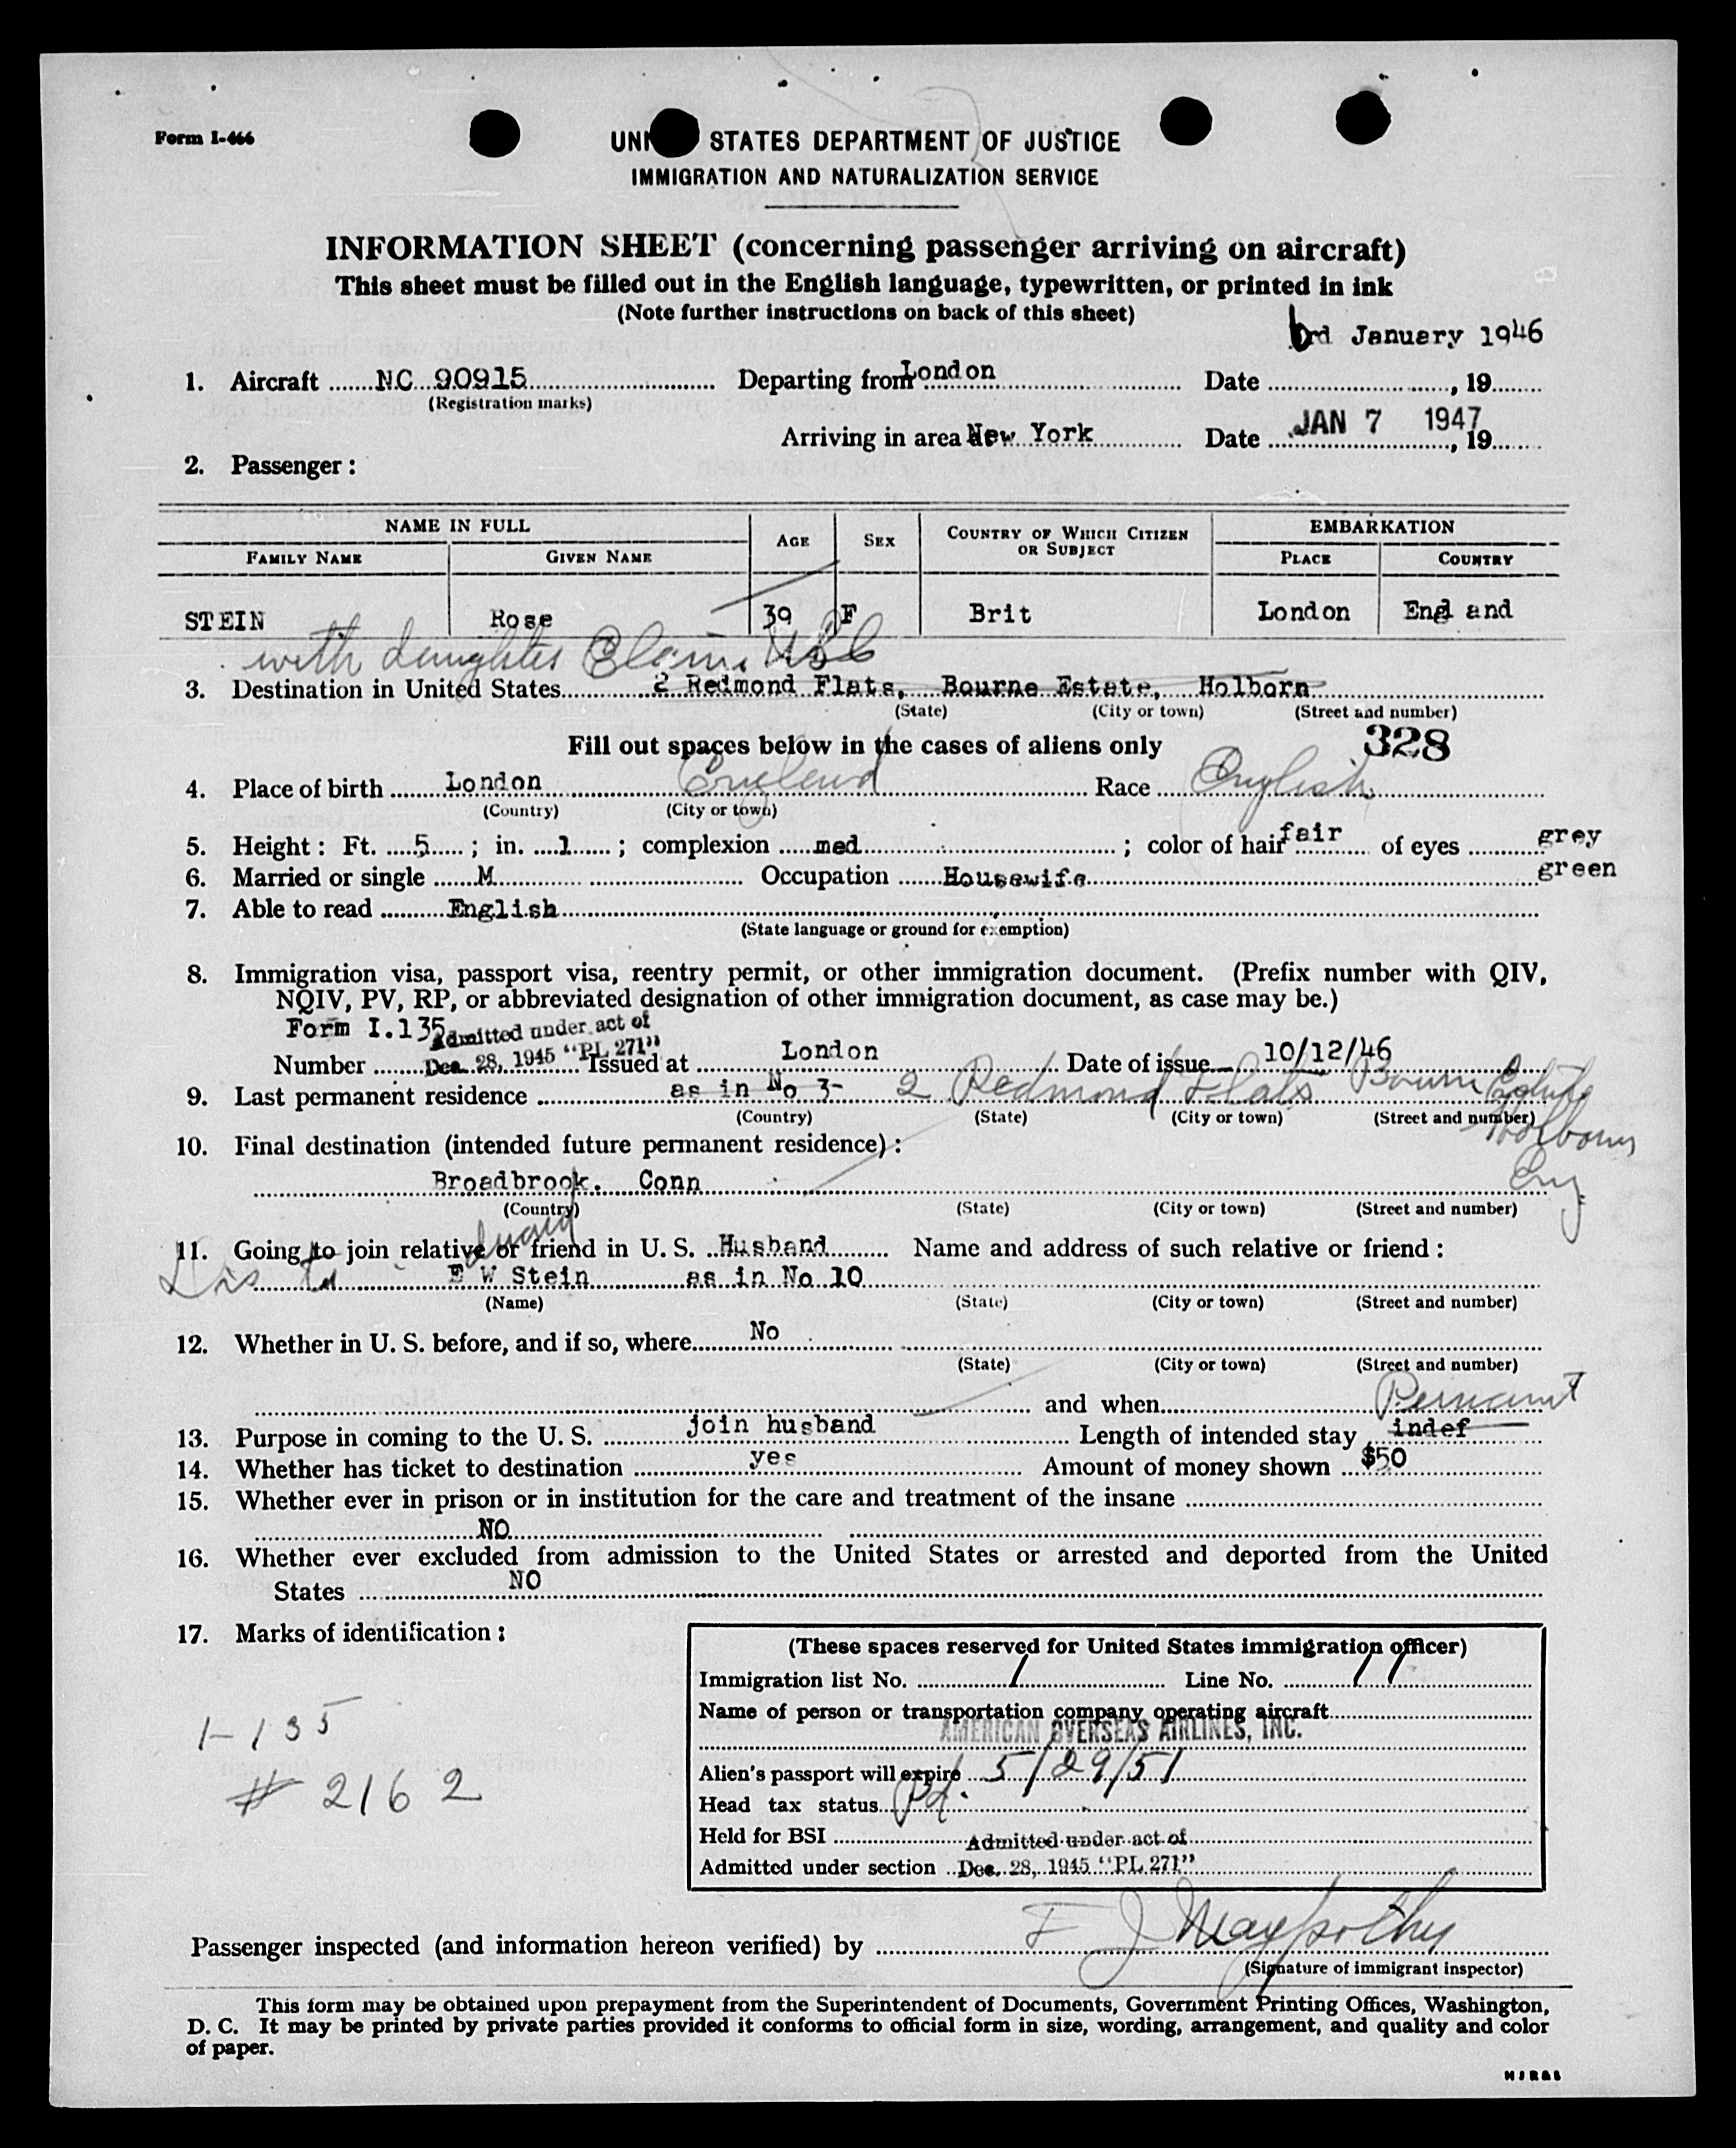 Form I-466
UNI STATES DEPARTMENT OF JUSTICE
IMMIGRATION AND NATURALIZATION SERVICE
INFORMATION SHEET (concerning passenger arriving on aircraft)
This sheet must be filled out in the English language, typewritten, or printed in ink
(Note further instructions on back of this sheet)
rd January 1946
1. Aircraft NC 90915 Departing from London Date , 19
(Registration marks)
Arriving in area New York Date JAN 7 1947, 19
2. Passenger:
NAME IN FULL EMBARKATION
FAMILY NAME GIVEN NAME AGE SEX COUNTRY OF WHICH CITIZEN OR SUBJECT PLACE COUNTRY
STEIN Rose 39 F Brit London Eng and
with daughter Elaine USC
3. Destination in United States 2 Redmond Flats, Bourne Estate, Holborn
(State) (City or town) (Street and number)
Fill out spaces below in the cases of aliens only 328
4. Place of birth London England Race English
(Country) (City or town)
5. Height: Ft. 5; in. 1; complexion med; color of hair fair of eyes grey
green
6. Married or single M Occupation Housewife
7. Able to read English
(State language or ground for exemption)
8. Immigration visa, passport visa, reentry permit, or other immigration document. (Prefix number with QIV,
NQIV, PV, RP, or abbreviated designation of other immigration document, as case may be.)
Form I.135 Admitted under act of
Number Dec. 28, 1945 "PL 271" Issued at London Date of issue 10/12/46
9. Last permanent residence as in No 3 2 Redmond Flats Bourn Estate
(Country) (State) (City or town) (Street and number)
Holborn
10. Final destination (intended future permanent residence):
Eng
Broadbrook. Conn
(Country) (State) (City or town) (Street and number)
11. Going to join relative or friend in U. S. Husband Name and address of such relative or friend:
E W Stein as in No 10
(Name) (State) (City or town) (Street and number)
12. Whether in U. S. before, and if so, where No
(State) (City or town) (Street and number)
and when
Permanent
13. Purpose in coming to the U. S. join husband Length of intended stay indef
14. Whether has ticket to destination yes Amount of money shown $50
15. Whether ever in prison or in institution for the care and treatment of the insane
NO
16. Whether ever excluded from admission to the United States or arrested and deported from the United
States NO
17. Marks of identification:
1-135
# 2162
(These spaces reserved for United States immigration officer)
Immigration list No. 1 Line No. 11
Name of person or transportation company operating aircraft
AMERICAN OVERSEAS AIRLINES, INC.
Alien's passport will expire 5/29/51
Head tax status Pd.
Held for BSI Admitted under act of
Admitted under section Dec. 28, 1945 "PL 271"
Passenger inspected (and information hereon verified) by F J
(Signature of immigrant inspector)
This form may be obtained upon prepayment from the Superintendent of Documents, Government Printing Offices, Washington,
D. C. It may be printed by private parties provided it conforms to official form in size, wording, arrangement, and quality and color
of paper.